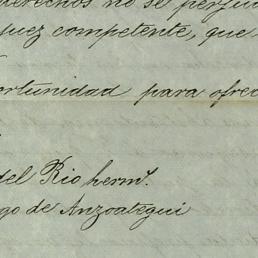 derechos no se perju
juez competente, que
ortunidad para ofrec
del Rio herm.
go de Anzoategui